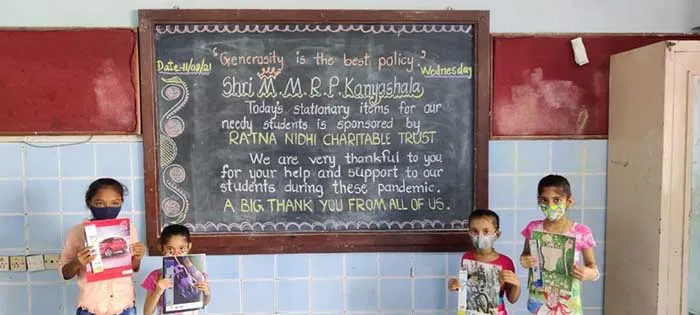 "Generosity is the best policy."
Date-11/08/21
Wednesday
Shri M.M.R.P. Kanyashala
Today's stationary items for our
needy students is sponsored by
RATNA NIDHI CHARITABLE TRUST
We are very thankful to you
for your help and support to our
students during these pandemic.
A BIG THANK YOU FROM ALL OF US.